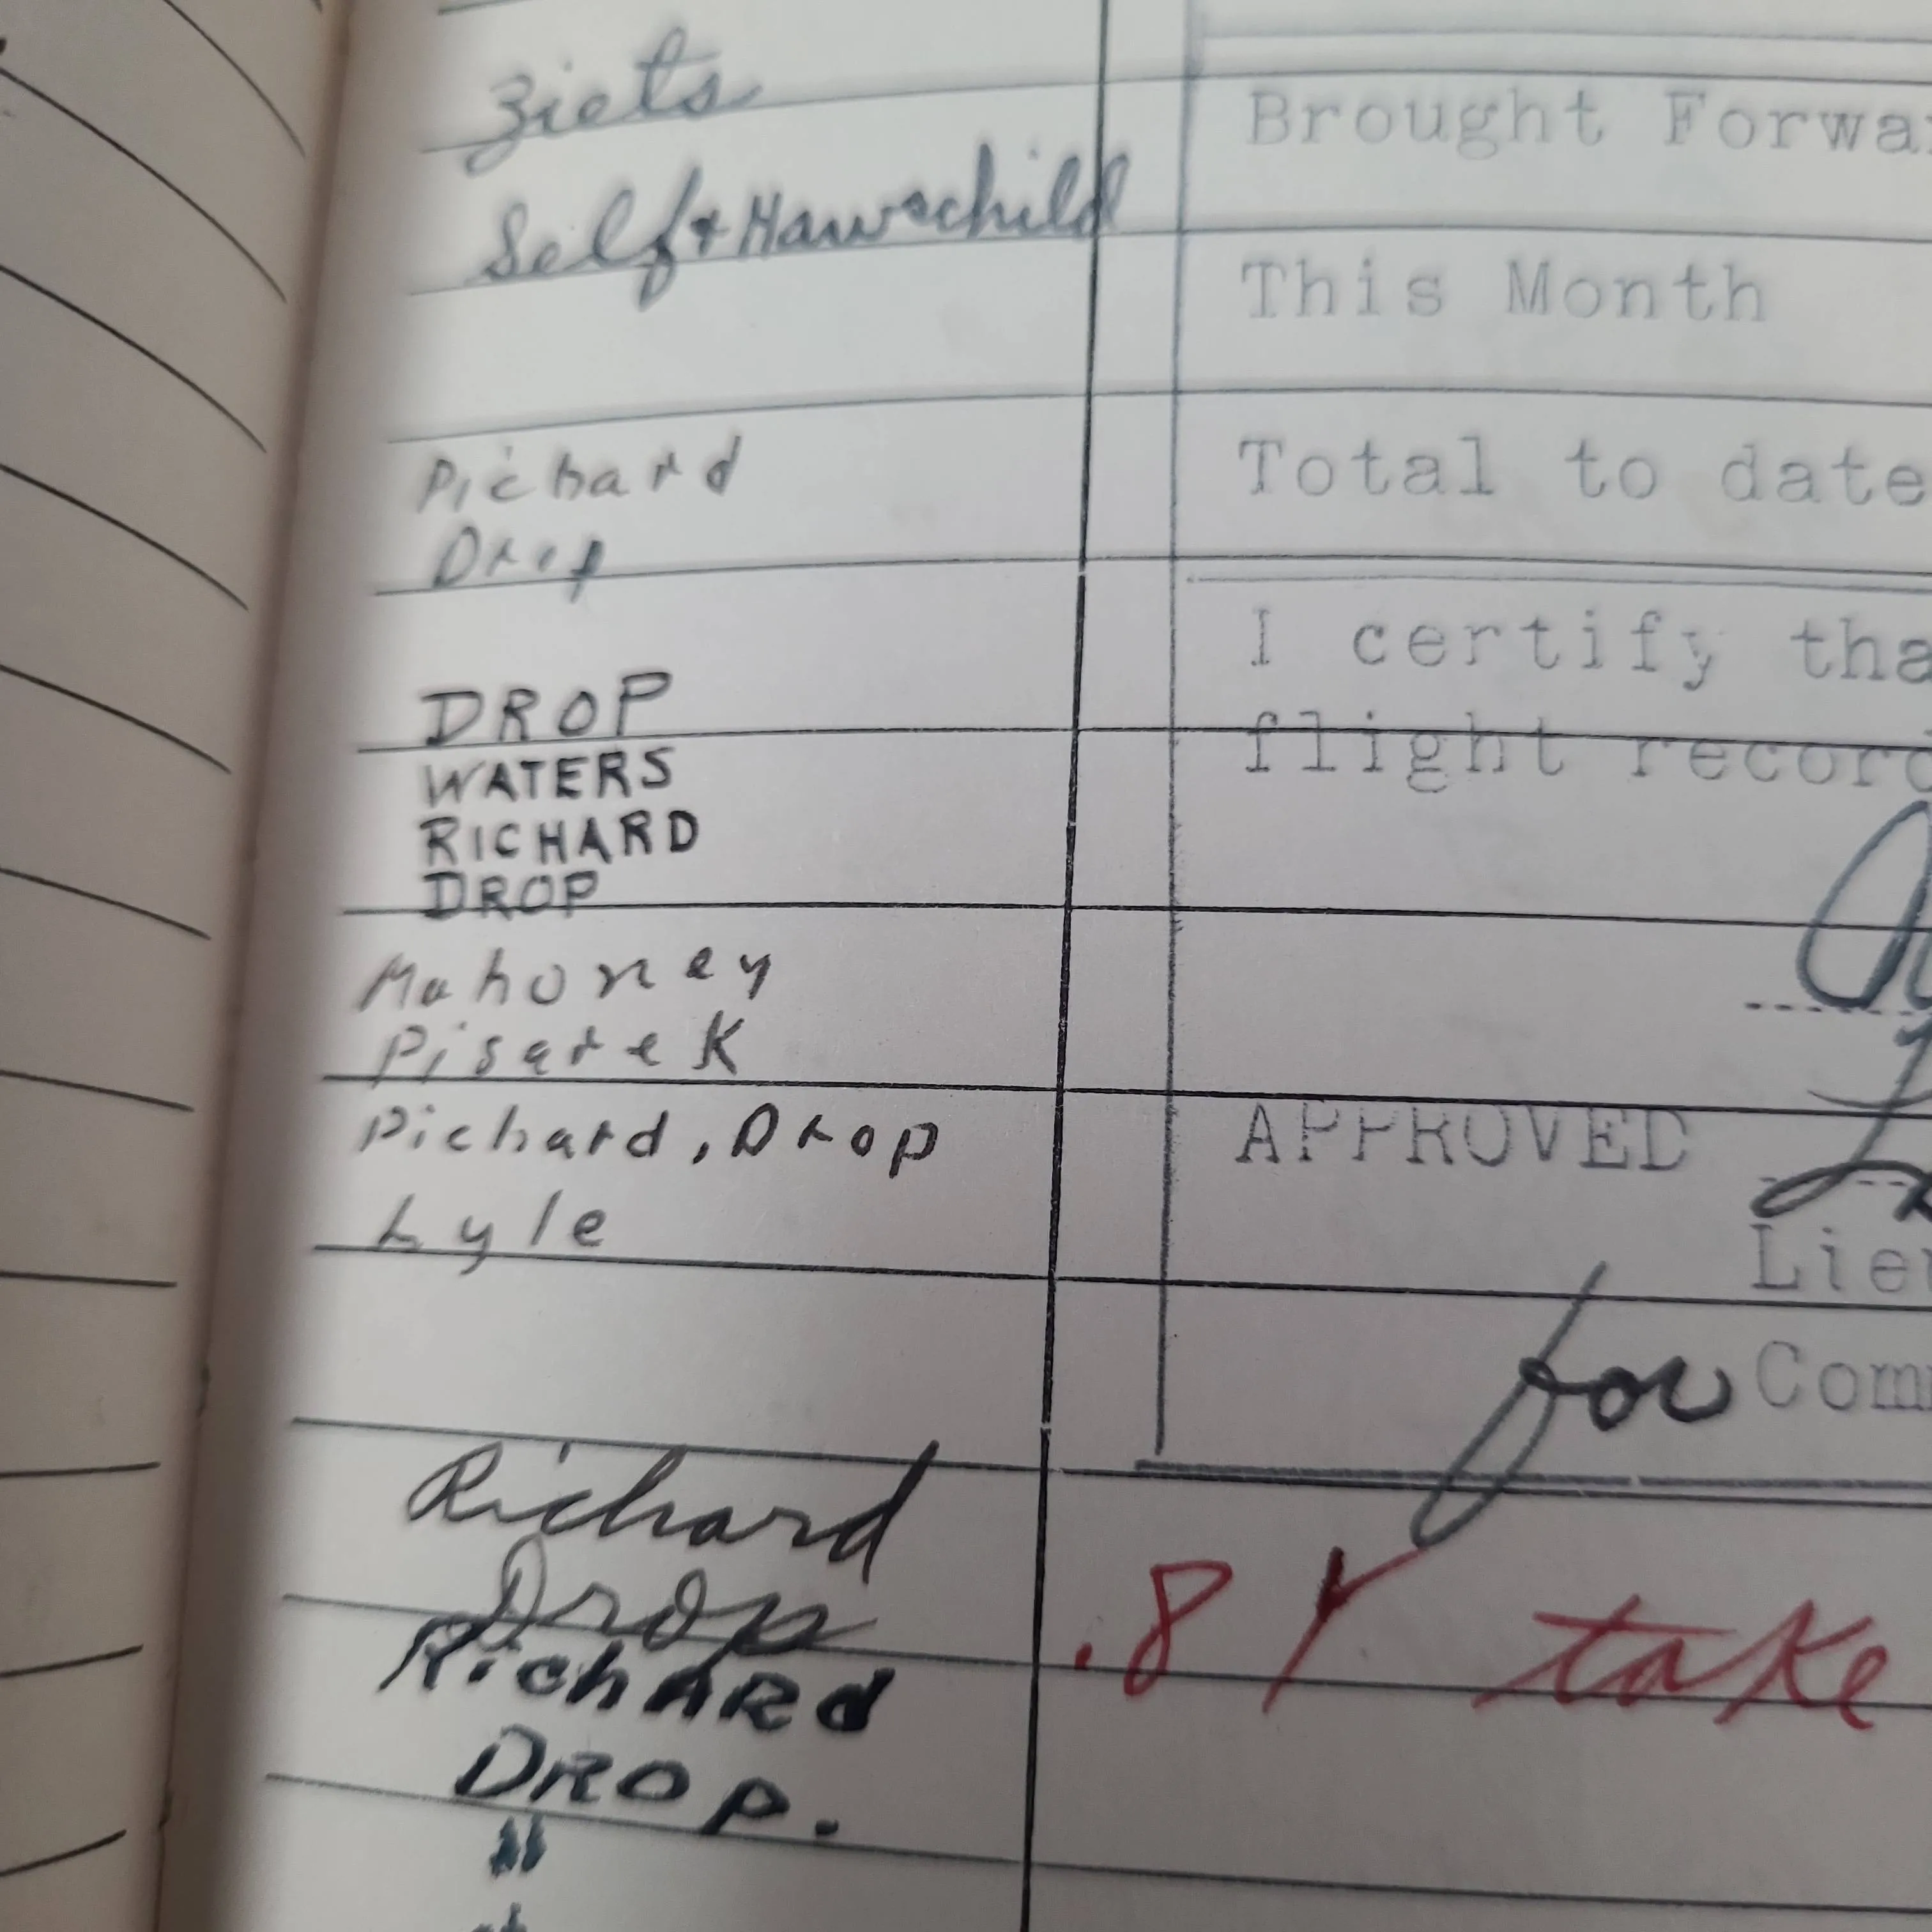 Ziets
Self + Hawschild
Richard
Drop
DROP
WATERS
RICHARD
DROP
Mahoney
Pisarek
Richard, Drop
Lyle
Richard
Drop
RichARd
DROP.
"
Brought Forwa
This Month
Total to date
I certify tha
flight record
APPROVED
Lieu
for Comm
.8 Y take